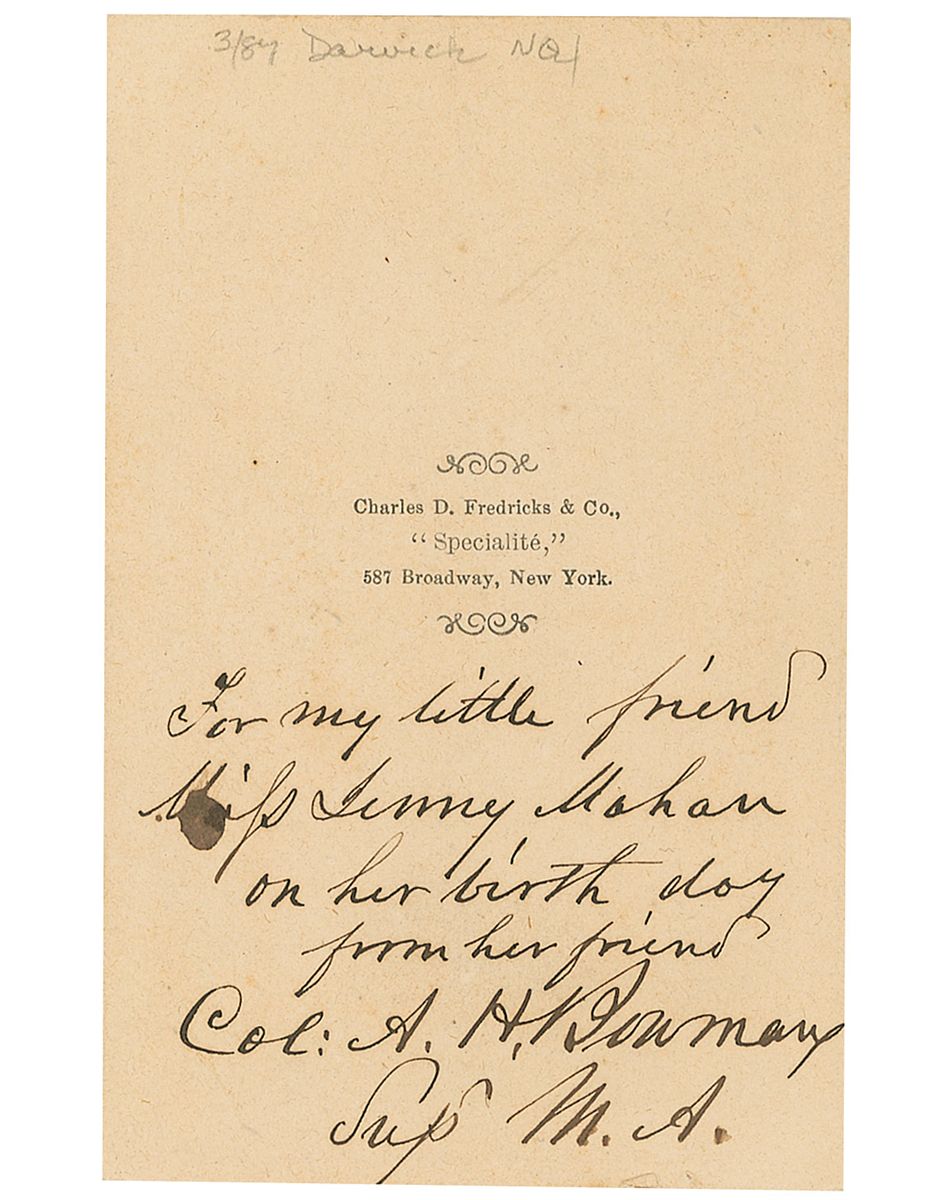 3/84 Darvick
Charles D. Fredricks & Co.,
"Specialité,"
587 Broadway, New York.
For my little friend
Miss Jenny Mahan
on her birth day
from her friend
Col: A. H. Bowman
Sup M. A.